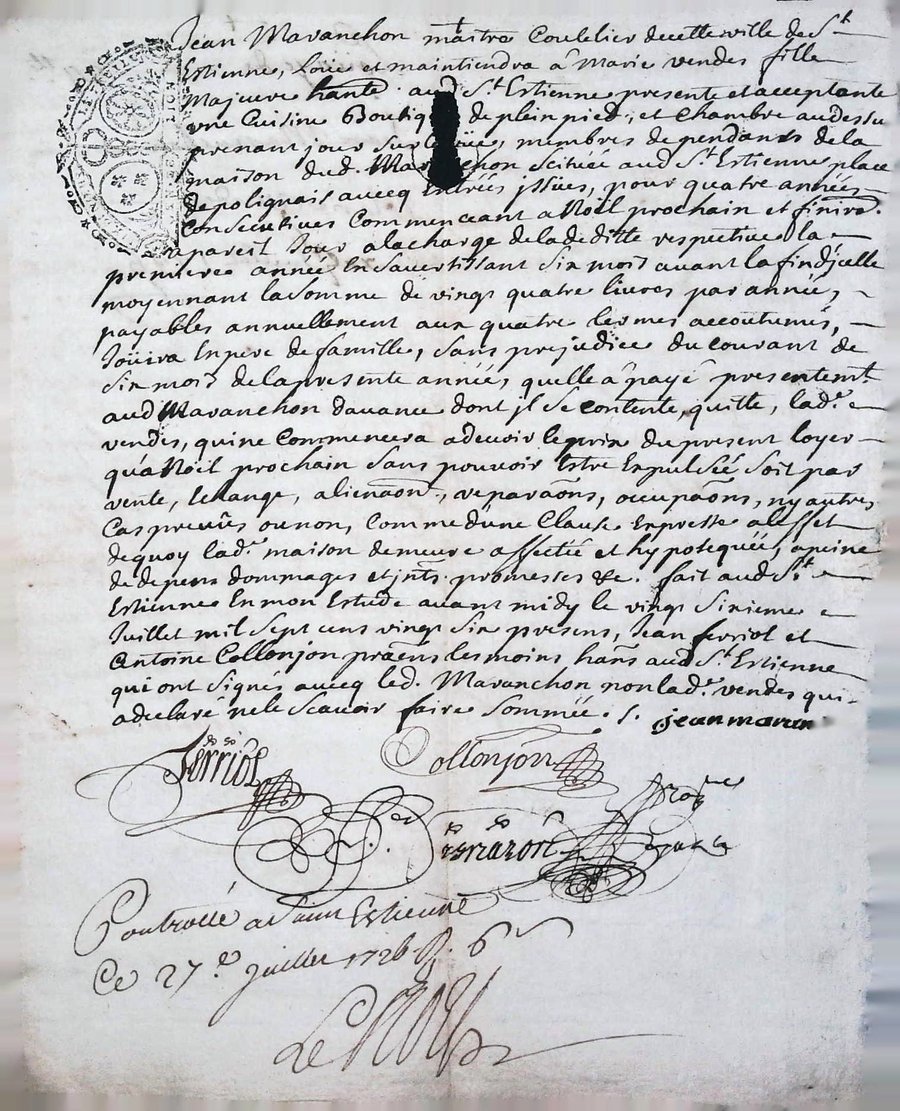 Jean Maranchon maitre Coutelier decette ville de St
Estienne, Loüe et maintiendra a Marie vendes fille
Majeure hante. aud St Estienne presente et acceptante
une Cuisine Boutique de plein pied, et Chambre audessu
prenant jour sur la rüe, membres dependants de la
maison dud. Maranchon scituée aud St Estienne place
de polignais avecq Entrées issües, pour quatre années
Consecutives Commencant a Noël prochain et finira
apareil Jour alacharge deladeditte respective la
premiere année En Savertissant Six mois avant lafindjcelle
moyennant lasomme de vingt quatre livres par année,
payables annuellement aux quatre termes accoutumés,
Joüira En pere de famille, sans prejudice du courant de
six mois delapresente année, quelle a payé presentemt
aud Maranchon davance dont jl se contente, quitte, lad.e
vendes, quine Commencera adevoir leprix du present loyer
qua Noël prochain sans pouvoir Estre Expulsée soit par
vente, Echange, alienaon, reparaons, occupaons, ny autres
Cas preveûs ounon, Comme dune Clause Expresse aleffet
dequoy lad.e maison demeure affectée et hypotequée, apeine
de depens dommages et jnts. promesses &c. fait aud St
Estienne En mon Estude avant midy le vingt sixieme
Juillet mil sept cens vingt six presens, Jean ferriol et
Antoine Collonjon praens tesmoins hans aud St Estienne
qui ont signés avecq led. Maranchon non lad.e vendes qui
adeclaré nele scavoir faire sommée. /. jean maran
ferriol Collonjon
Controllé a Saint Estienne
Ce 27.e juillet 1726 R. 6s